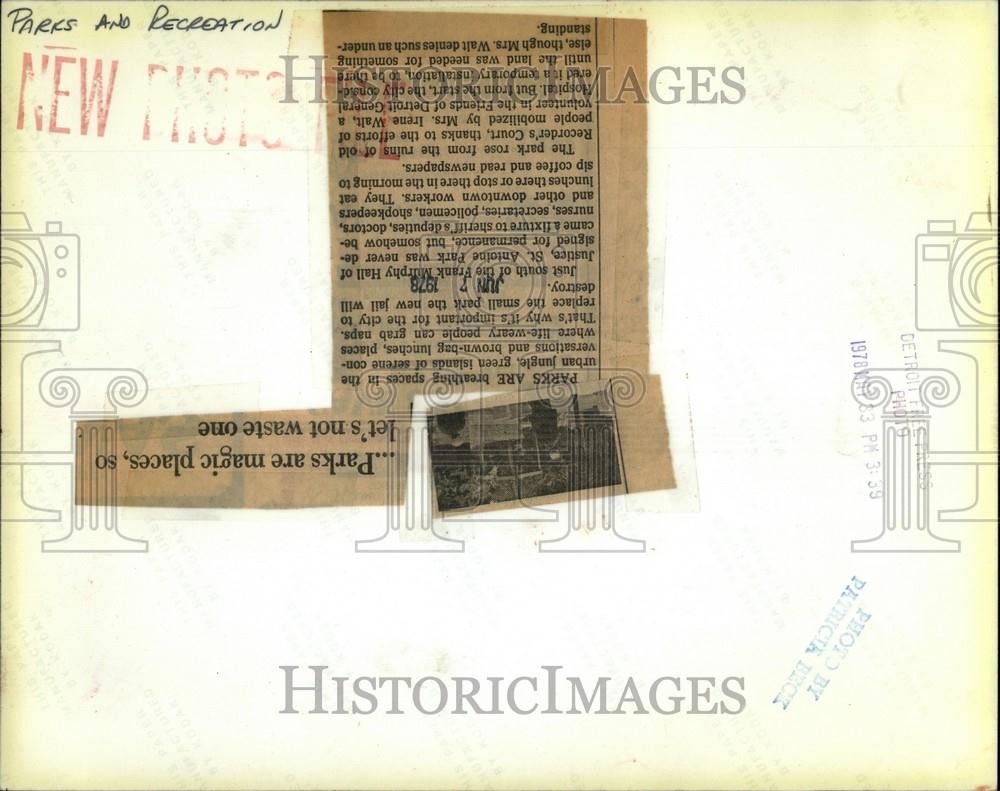 PARKS AND RECREATION
NEW PHOTO FILE
...Parks are magic places, so
let's not waste one
PARKS ARE breathing spaces in the
urban jungle, green islands of serene con-
versations and brown-bag lunches, places
where life-weary people can grab naps.
That's why it's important for the city to
replace the small park the new jail will
destroy.
JUN 7 1978
Just south of the Frank Murphy Hall of
Justice, St. Antoine Park was never de-
signed for permanence, but somehow be-
came a fixture to sheriff's deputies, doctors,
nurses, secretaries, policemen, shopkeepers
and other downtown workers. They eat
lunches there or stop there in the morning to
sip coffee and read newspapers.
The park rose from the ruins of old
Recorder's Court, thanks to the efforts of
people mobilized by Mrs. Irene Walt, a
volunteer in the Friends of Detroit General
Hospital. But from the start, the city consid-
ered it a temporary installation, to be there
until the land was needed for something
else, though Mrs. Walt denies such an under-
standing.
DETROIT FREE PRESS
PHOTO
1978 MAY 83 PM 3:39
PHOTO BY
PATRICIA BECK
HISTORICIMAGES
HISTORICIMAGES